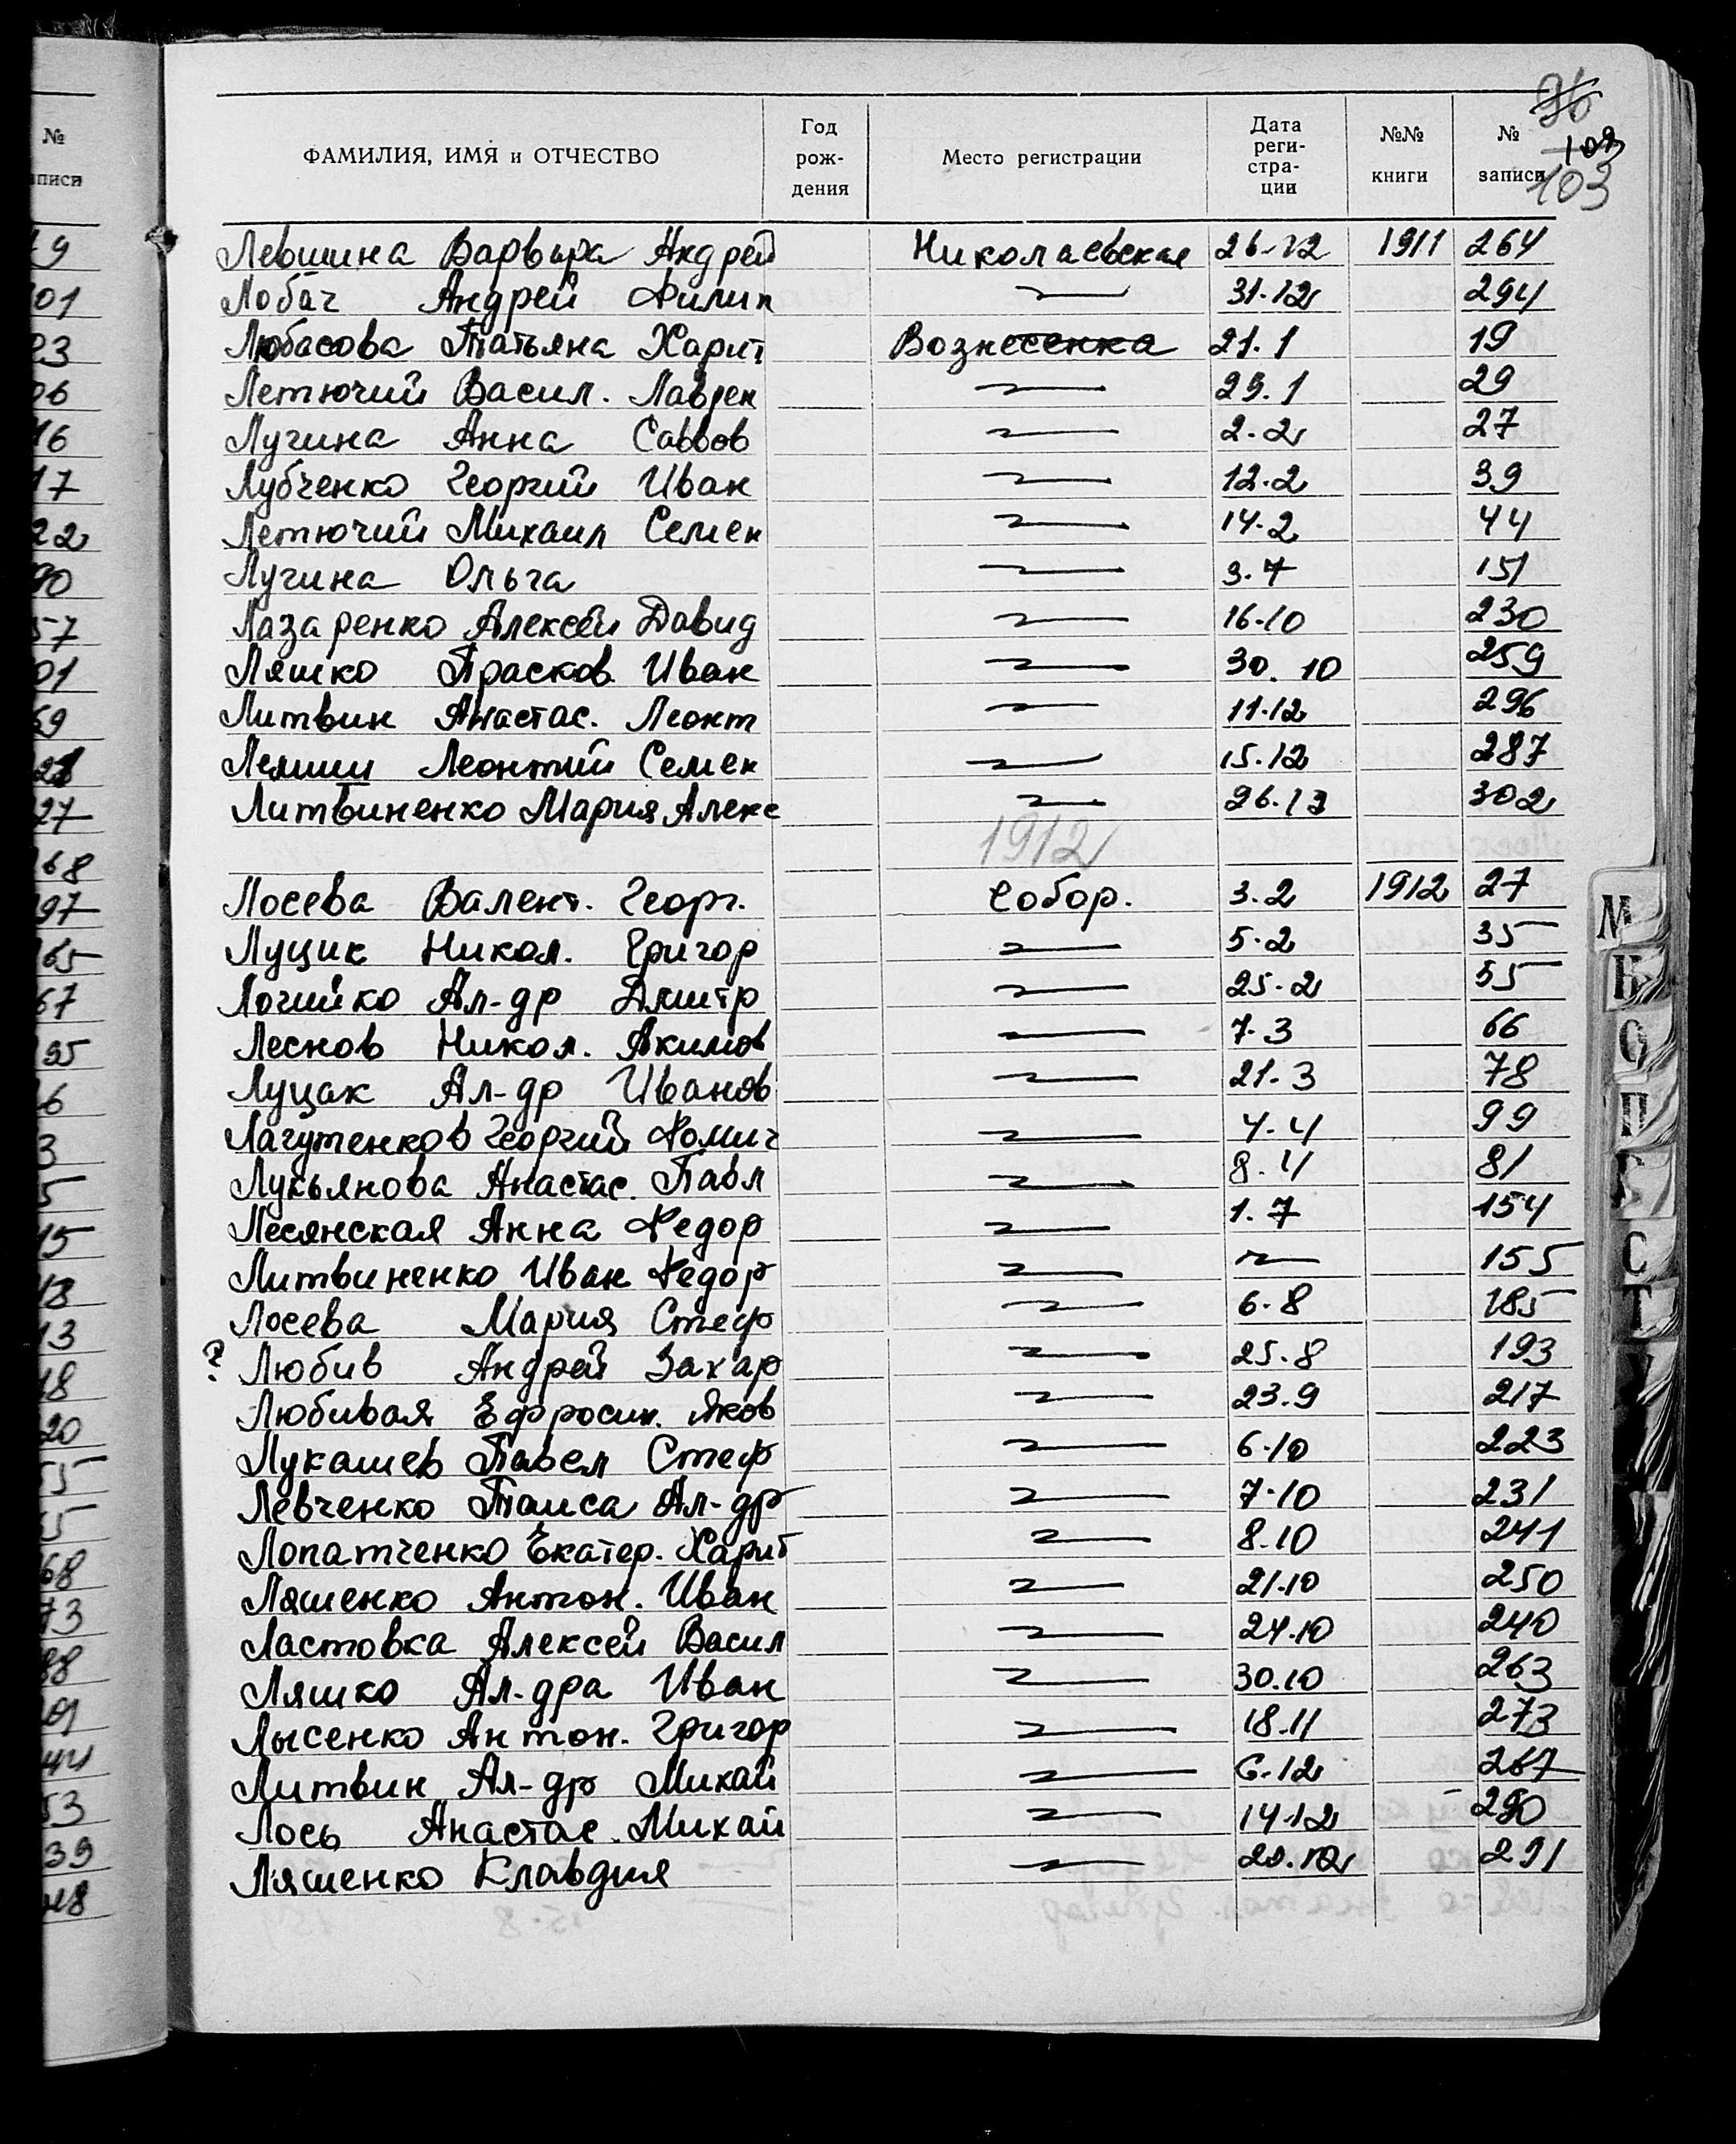 96
103
103
ФАМИЛИЯ, ИМЯ и ОТЧЕСТВО Год рож- дения Место регистрации Дата реги- стра- ции №№ книги № записи
Левшина Варвара Андрей Николаевская 26-12 1911 264
Лобач Андрей Филип 31-12 294
Любасова Татьяна Харит Вознесенка 21.1 19
Летючий Васил. Лаврен 29.1 29
Лугина Анна Саввов 2.2 27
Лубченко Георгий Иван 12.2 39
Летючий Михаил Семен 14.2 44
Лугина Ольга 3.7 151
Лазаренко Алексей Давид 16-10 230
Ляшко Прасков. Иван 30.10 259
Литвин Анастас. Леонт 11.12 296
Лемиш Леонтий Семен 15.12 287
Литвиненко Мария Алекс 26.12 302
1912
Лосева Валент. Георг. Собор. 3.2 1912 27
Луцик Никол. Григор 5.2 35
Логийко Ал-др Дмитр 25-2 55
Леснов Никол. Акимов 7.3 66
Луцак Ал-др Иванов 21.3 78
Лагутенков Георгий Фомич 4.4 99
Лукьянова Анастас. Павл 8.4 81
Лесянская Анна Федор 1.7 154
Литвиненко Иван Федор 155
Лосева Мария Стеф 6.8 185
? Любив Андрей Захар 25.8 193
Любивая Ефросин. Яков 23.9 217
Лукашев Павел Стеф 6-10 223
Левченко Таиса Ал-др 7.10 231
Лопатченко Екатер. Харит 8.10 241
Ляшенко Антон. Иван 21.10 250
Ластовка Алексей Васил 24.10 240
Ляшко Ал-дра Иван 30.10 263
Лысенко Антон. Григор 18.11 273
Литвин Ал-др Михай 6.12 267
Лось Анастас. Михай 14.12 290
Ляшенко Клавдия 20.12 291
М
О
П
С
Т